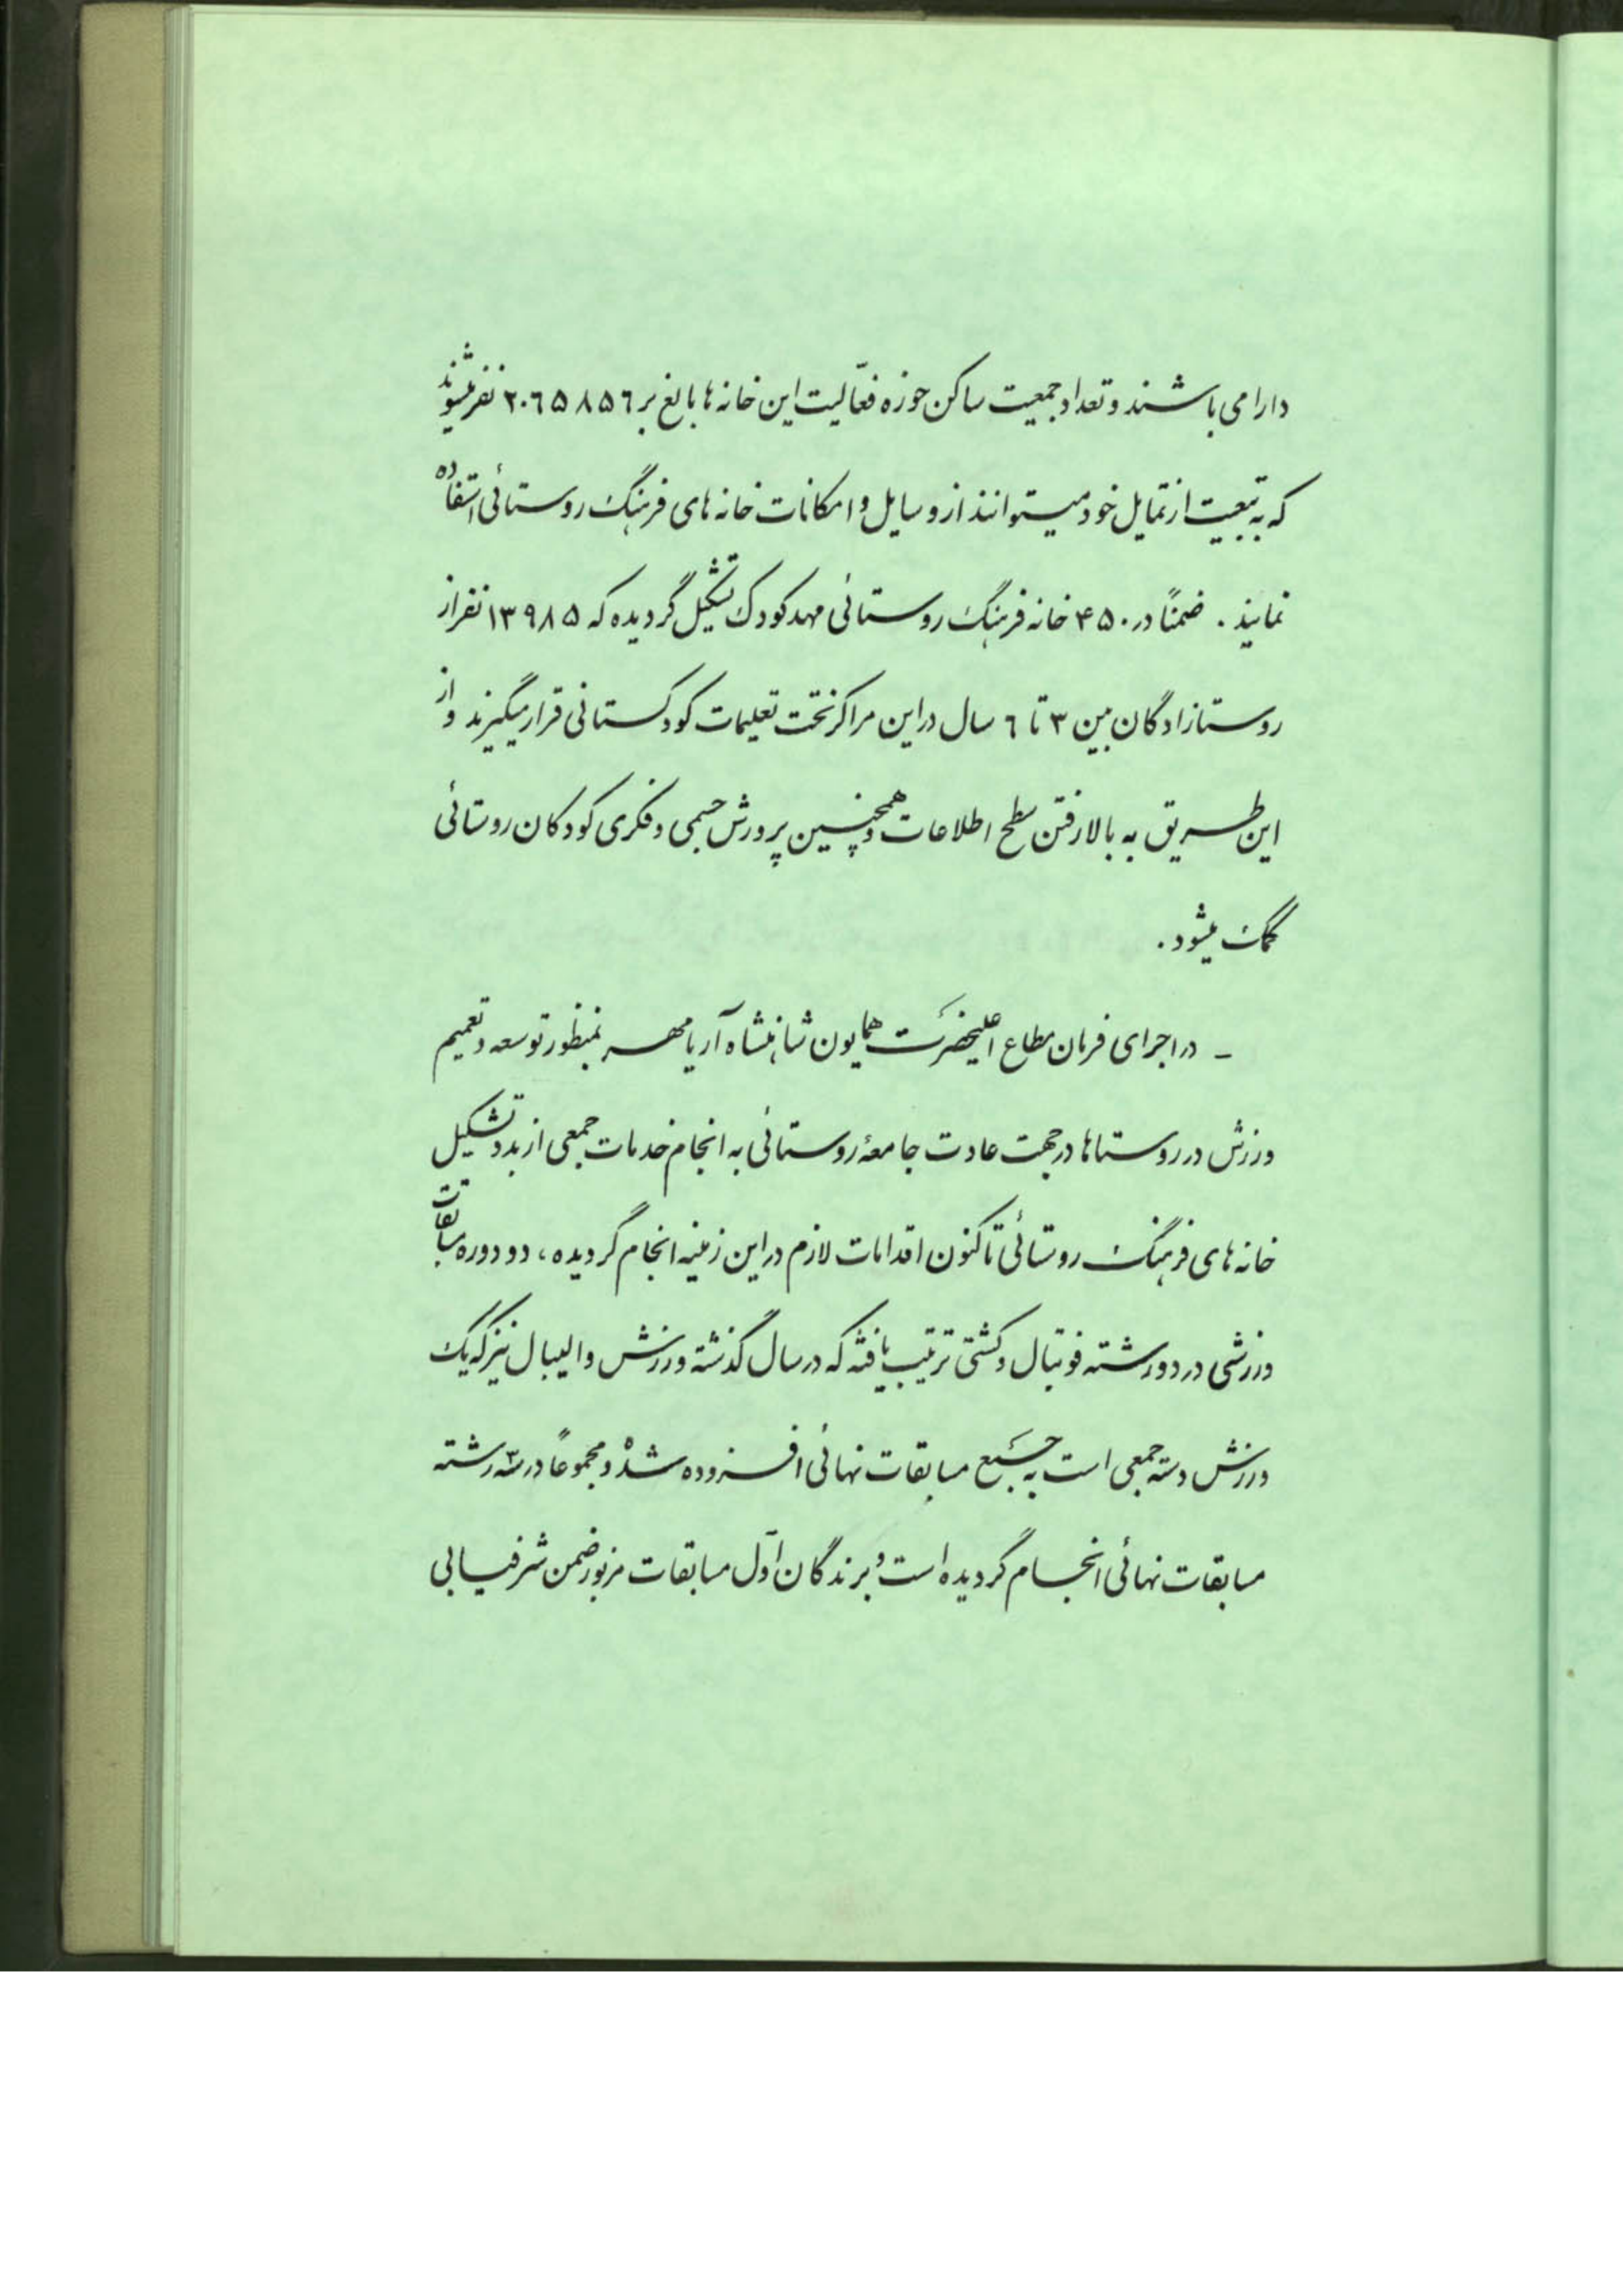 دارا می باشند و تعداد جمعیت ساکن حوزه فعّالیت این خانه ها بالغ بر ۲۰۶۵۸۵۶ نفر میشوند
که به تبعیت از تمایل خود میتوانند از وسایل و امکانات خانه های فرهنگ روستائی استفاده
نمایند . ضمناً در ۴۵۰ خانه فرهنگ روستائی مهد کودک تشکیل گردیده که ۱۳۹۸۵ نفر از
روستازادگان بین ۳ تا ۶ سال در این مراکز تحت تعلیمات کودکستانی قرار میگیرند و از
این طریق به بالا رفتن سطح اطلاعات و همچنین پرورش جسمی و فکری کودکان روستائی
کمک میشود .
- در اجرای فرمان مطاع اعلیحضرت همایون شاهنشاه آریامهر بمنظور توسعه و تعمیم
ورزش در روستاها در جهت عادت جامعهٔ روستائی به انجام خدمات جمعی از بدو تشکیل
خانه های فرهنگ روستائی تاکنون اقدامات لازم در این زمینه انجام گردیده ، دو دوره مسابقات
ورزشی در دو رشته فوتبال و کشتی ترتیب یافته که در سال گذشته ورزش والیبال نیز که یک
ورزش دسته جمعی است به جمع مسابقات نهائی افزوده شده و مجموعاً در سه رشته
مسابقات نهائی انجام گردیده است و برندگان اول مسابقات مزبور ضمن شرفیابی